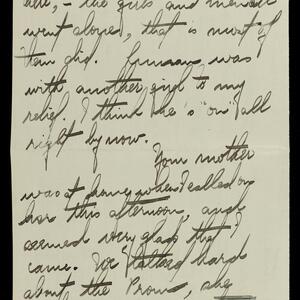 and
went slopes, that is most of
them did. was
with another girl to my
relief. I think he's "on" all
right by now.
Your mother
was at home when I called on
her this afternoon, and
seemed very glad that I
came. We talked hard
about the Prom, she